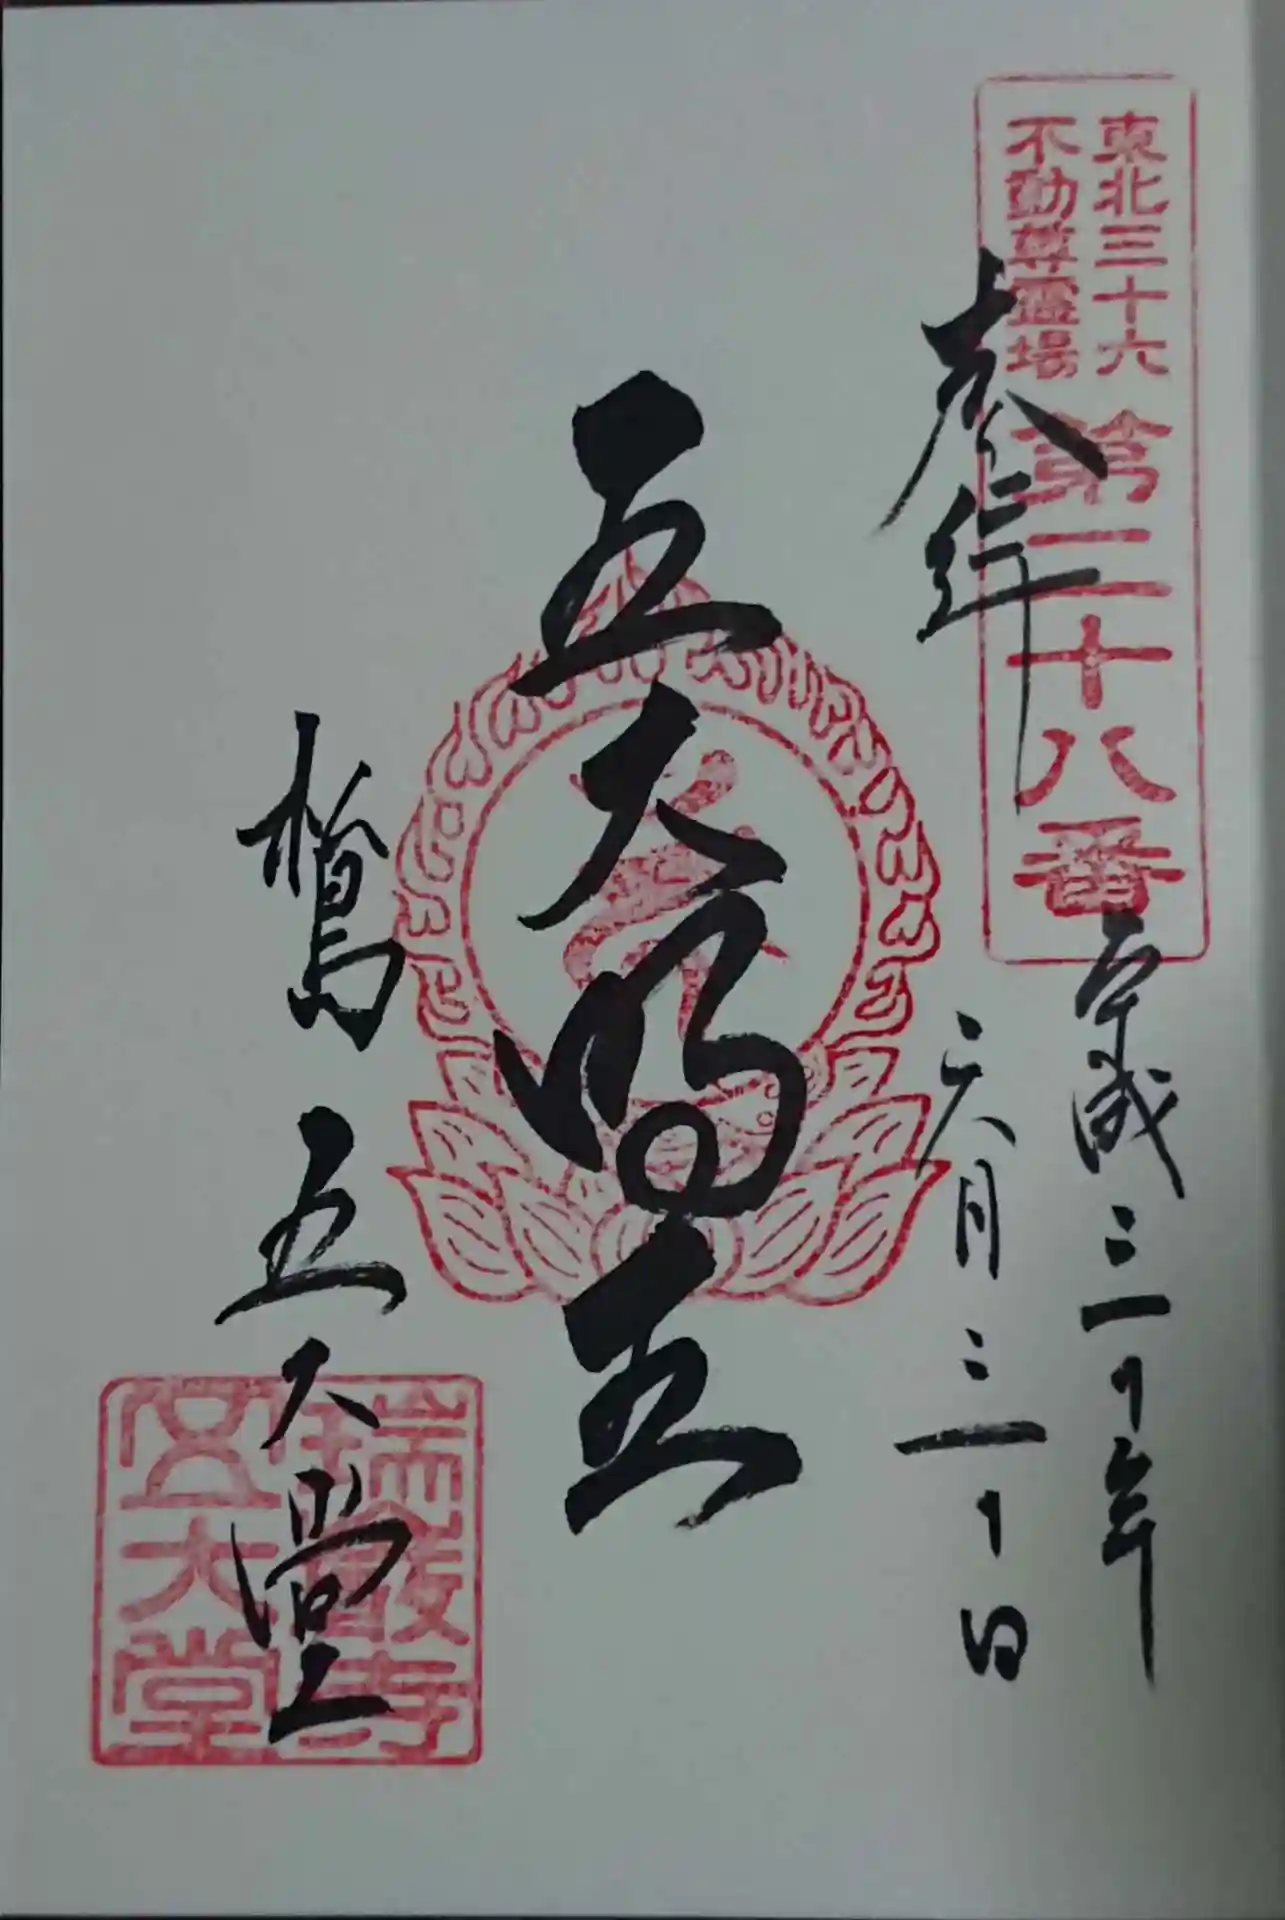 東北三十六
不動尊霊場
第二十八番
奉拝
平成三十年
六月三十日
五大明王
松島
五大堂
瑞巌寺
五大堂